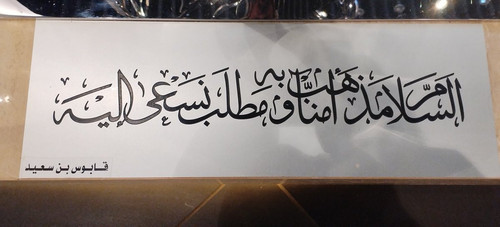 السَّلامُ مَذهَب آمنَّا به وَمطلب نَسْعَى إليْه
قابوس بن سعيد